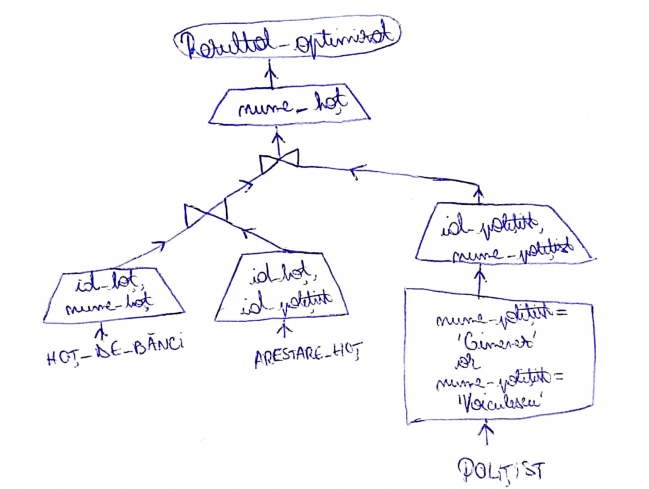 Rezultat_optimizat
nume_hoț
id_hoț,
nume_hoț
HOȚ_DE_BĂNCI
id_hoț,
id_polițist
ARESTARE_HOȚ
id_polițist,
nume_polițist
nume_polițist=
'Gimenez'
or
nume_polițist=
'Voiculescu'
POLIȚIST